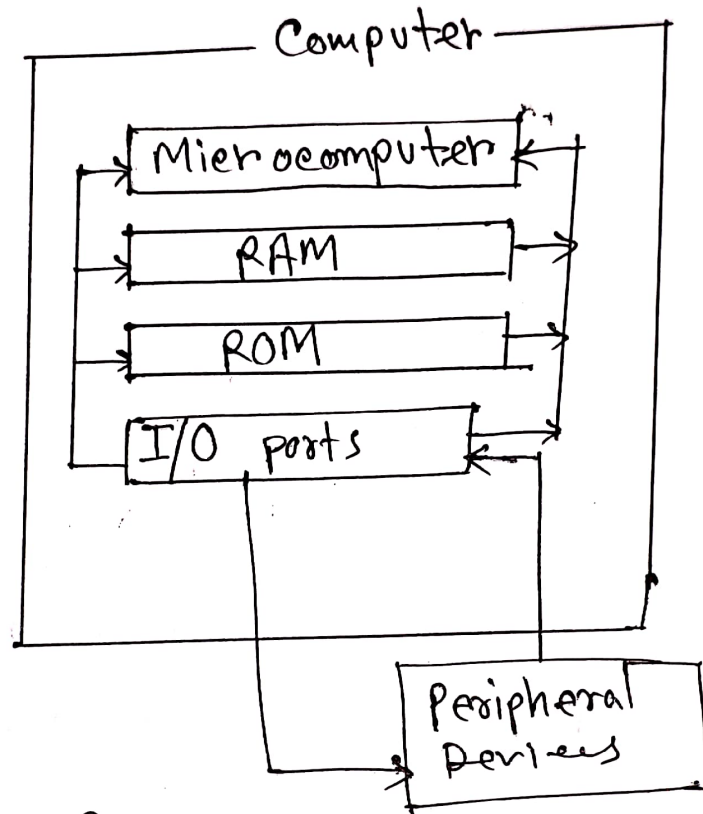 Computer
Microcomputer
RAM
ROM
I/O ports
Peripheral
Devices